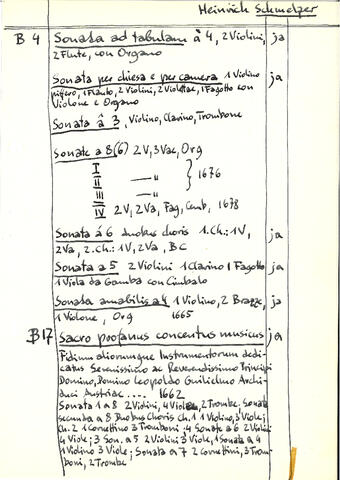 Heinrich Schmelzer
B 4 Sonata ad tabulam â 4, 2 Violini, ja
2 Flute, con Organo
Sonata per chiesa e per camera 1 Violino ja
piffero, 1 Flauto, 2 Violini, 2 Violettae, 1 Fagotto con
Violone e Organo
Sonata â 3, Violino, Clarino, Trombone
Sonate a 8(6) 2 V, 3 Vae, Org
I
II —„— } 1676
III —„—
IV 2 V, 2 Va, Fag, Cemb, 1678
Sonata á 6 duobus choris 1. Ch.: 1 V, ja
2 Va, 2. Ch.: 1 V, 2 Va, BC
Sonata a 5 2 Violini 1 Clarino 1 Fagotto ja
1 Viola da Gamba con Cimbalo
Sonata amabilis a 4 1 Violino, 2 Brazze, ja
1 Violone, Org 1665
B 17 Sacro profanus concentus musicus ja
Fidium aliorumque Instrumentorum dedi-
catus Serenissimo ac Reverendissimo Principi
Domino, Domino Leopoldo Guilielmo Archi-
duci Austriae .... 1662
Sonata 1 a 8 2 Violini, 4 Viole, 2 Trombe. Sonata
secunda a 8 Duobus Choris Ch. 1 1 Violino, 3 Viole;
Ch. 2 1 Cornettino 3 Tromboni; 4 Sonate a 6 2 Violini
4 Viole; 3 Son. a 5 2 Violini 3 Viole, 1 Sonata a 4
1 Violino 3 Viole; Sonata a 7 2 Cornettini, 3 Trom-
boni, 2 Trombe